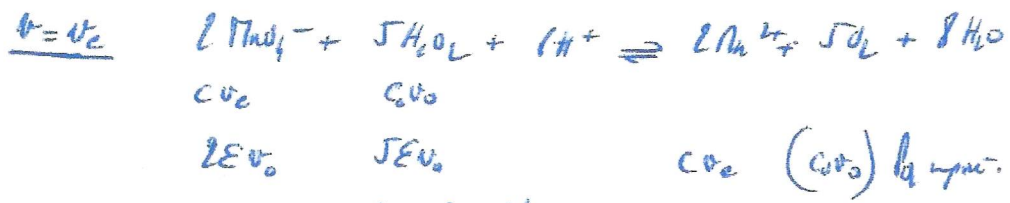 v = ve 2 MnO4⁻ + 5H2O2 + 6H⁺ ⇌ 2Mn²⁺ + 5O2 + 8H2O
cve c0v0
2εv0 5εv0 cve (c0v0)